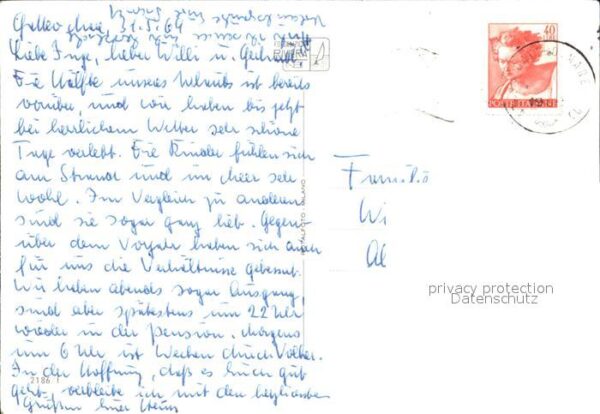 31.5.64
Liebe Inge, lieber Willi u. Gertrud
Die Hälfte unseres Urlaubs ist bereits
vorüber, und wir haben bis jetzt
bei herrlichem Wetter sehr schöne
Tage verlebt. Die Kinder fühlen sich
am Strande und im Meer sehr
wohl. Im Vergleich zu anderen
sind sie sogar ganz lieb. Gegen-
über dem Vorjahr haben sich auch
für uns die Verhältnisse gebessert.
Wir haben abends sogar Ausgang,
sind aber spätestens um 22 Uhr
wieder in der Pension. Morgens
um 6 Uhr ist Wecken durch Volker.
In der Hoffnung, daß es Euch gut
geht, verbleibe ich mit den herzlichsten
Grüßen Euer Heinz
2186
MILANO
40
POSTE ITALIANE
Familie
Wi
Al
privacy protection
Datenschutz